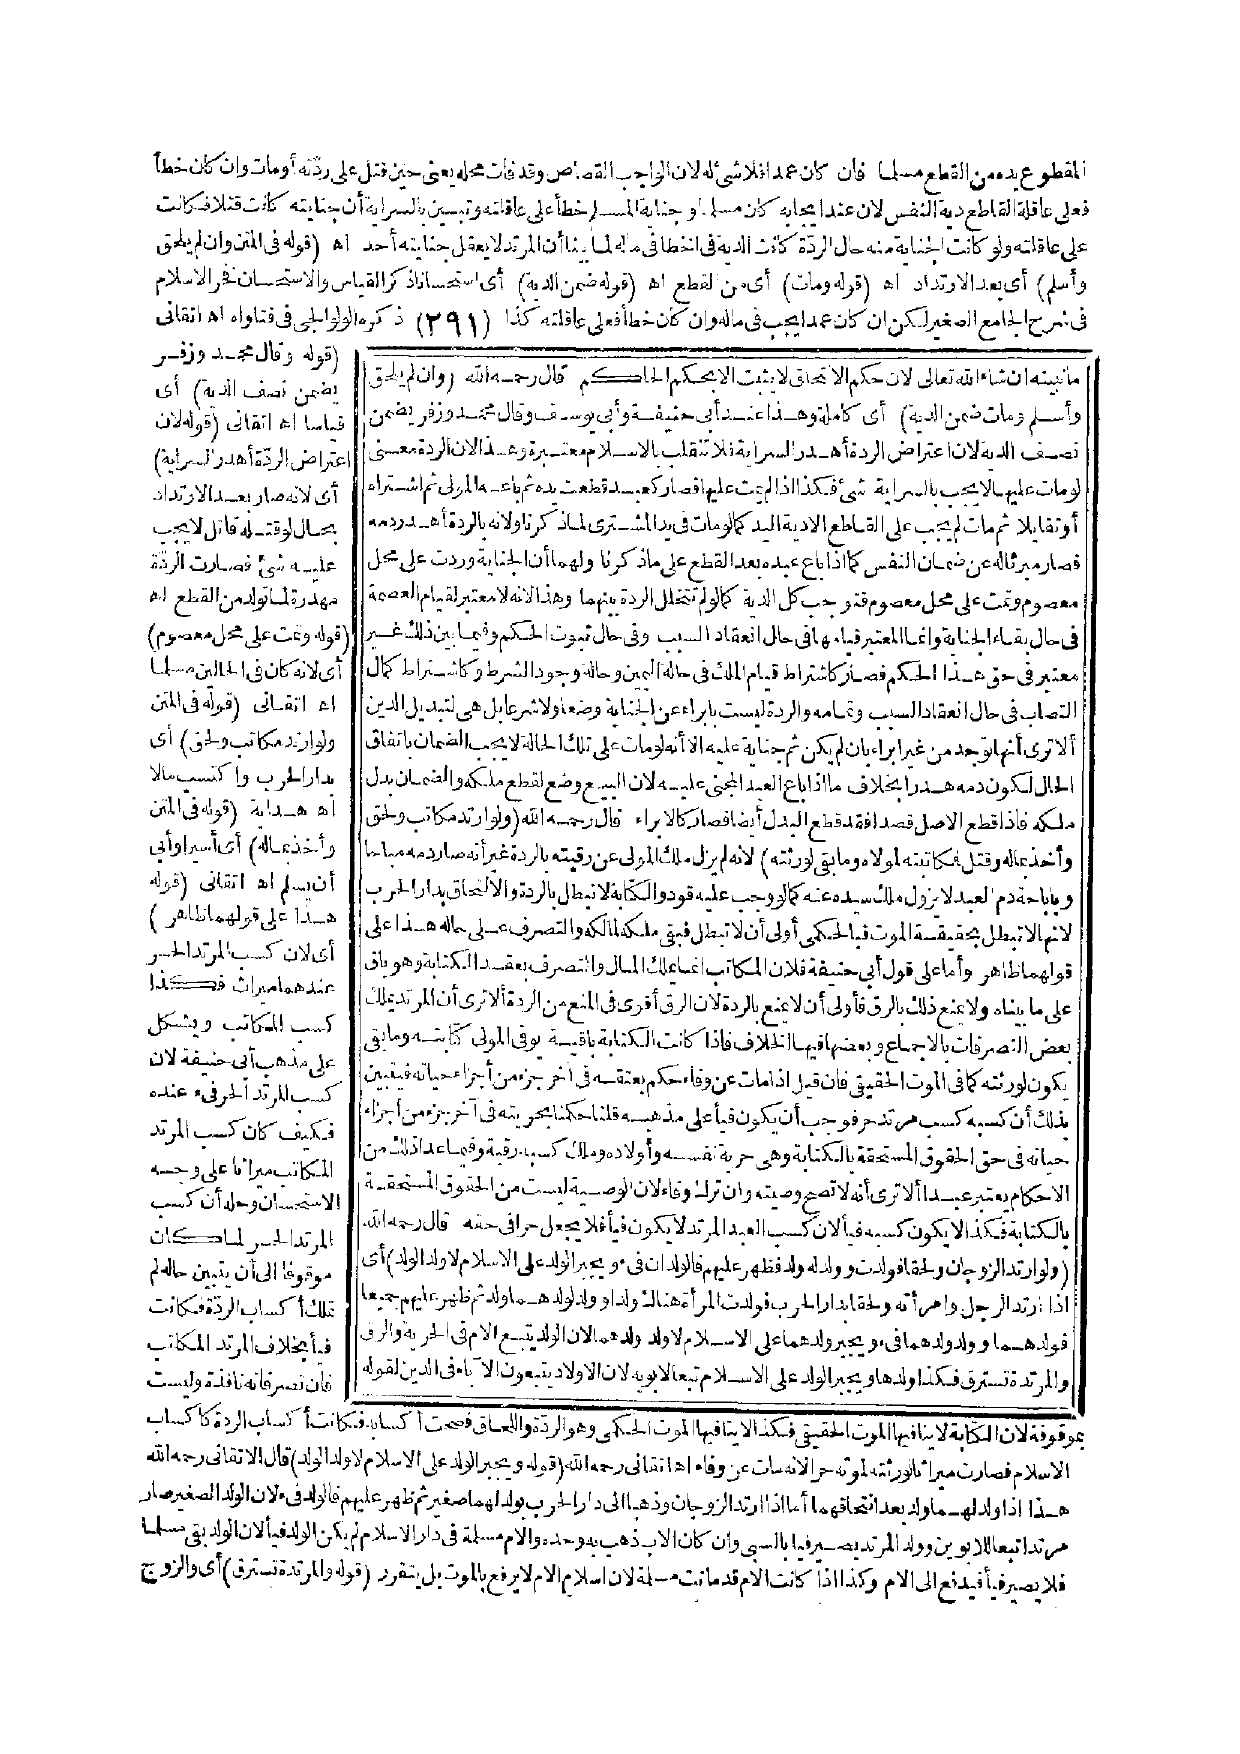 المقطوع يده من القطع مسلما فان كان عمدا فلا شئ له لان الواجب القصاص وقد فات محله يعنى حين قتل على ردّته أو مات وان كان خطأ
فعلى عاقلة القاطع دية النفس لان عند ايجابه كان مسلما وجناية المسلم خطأ على عاقلته وتبين بالسراية أن جنايته كانت قتلا فكانت
على عاقلته ولو كانت الجناية منه حال الردّة كانت الدية فى الخطا فى ماله لما بينا أن المرتد لا يعقل جنايته أحد اه (قوله فى المتن وان لم يلحق
وأسلم) أى بعد الارتداد اه (قوله ومات) أى من القطع اه (قوله ضمن الدية) أى استحسانا ذكر القياس والاستحسان فخر الاسلام
فى شرح الجامع الصغير لكن ان كان عمدا يجب فى ماله وان كان خطأ فعلى عاقلته كذا (٢٩١) ذكره الولوالجى فى فتاواه اه اتقانى
ما نبينه ان شاء الله تعالى لان حكم الالتحاق لا يثبت الا بحكم الحاكم قال رحمه الله (وان لم يلحق
وأسلم ومات ضمن الدية) أى كاملة وهذا عند أبى حنيفة وأبى يوسف وقال محمد وزفر يضمن
نصف الدية لان اعتراض الردة أهدر السراية فلا تنقلب بالاسلام معتبرة وهذا لان الردة معنى
لو مات عليها لا يجب بالسراية شئ فكذا اذا لم يمت عليها فصار كعبد قطعت يده ثم باعه المولى ثم اشتراه
أو تقايلا ثم مات لم يجب على القاطع الا دية اليد كما لو مات فى يد المشترى لما ذكرنا ولانه بالردة أهدر دمه
فصار مبرئا له عن ضمان النفس كما اذا باع عبده بعد القطع على ما ذكرنا ولهما أن الجناية وردت على محل
معصوم وتمت على محل معصوم فتوجب كل الدية كما لو لم تتخلل الردة بينهما وهذا لانه لا معتبر لقيام العصمة
فى حال بقاء الجناية وانما المعتبر قيامها فى حال انعقاد السبب وفى حال ثبوت الحكم وفيما بين ذلك غير
معتبر فى حق هذا الحكم فصار كاشتراط قيام الملك فى حالة اليمين وحالة وجود الشرط وكاشتراط كمال
النصاب فى حال انعقاد السبب وتمامه والردة ليست بابراء عن الجناية وضعا ولا شرعا بل هى لتبديل الدين
ألا ترى أنها توجد من غير ابراء بان لم يكن ثم جناية عليه الا أنه لو مات على تلك الحالة لا يجب الضمان باتفاق
الحال لكون دمه هدرا بخلاف ما اذا باع العبد المجنى عليه لان البيع وضع لقطع ملكه والضمان بدل
ملكه فاذا قطع الاصل قصدا فقد قطع البدل أيضا فصار كالابراء قال رحمه الله (ولو ارتد مكاتب ولحق
وأخذ بماله وقتل فمكاتبته لمولاه وما بقى لورثته) لانه لم يزل ملك المولى عن رقبته بالردة غير أنه صار دمه مباحا
وباباحة دم العبد لا يزول ملك سيده عنه كما لو وجب عليه قود والكتابة لا تبطل بالردة والالتحاق بدار الحرب
لانها لا تبطل بحقيقة الموت فبالحكمى أولى أن لا تبطل فبقى ملكه لمالكه والتصرف على حاله هذا على
قولهما ظاهر وأما على قول أبى حنيفة فلان المكاتب انما يملك المال والتصرف بعقد الكتابة وهو باق
على ما بيناه ولا يمنع ذلك بالرق فأولى أن لا يمنع بالردة لان الرق أقوى فى المنع من الردة ألا ترى أن المرتد يملك
بعض التصرفات بالاجماع وبعضها فيها الخلاف فاذا كانت الكتابة باقية يوفى المولى كتابته وما بقى
يكون لورثته كما فى الموت الحقيقى فان قيل اذا مات عن وفاء حكم بعتقه فى آخر جزء من أجزاء حياته فيتبين
بذلك أن كسبه كسب مرتد حر فوجب أن يكون فيأ على مذهبه قلنا حكمنا بحريته فى آخر جزء من أجزاء
حياته فى حق الحقوق المستحقة بالكتابة وهى حرية نفسه وأولاده وملك كسبه رقبة وفيما عدا ذلك من
الاحكام يعتبر عبدا ألا ترى أنه لا تصح وصيته وان ترك وفاء لان الوصية ليست من الحقوق المستحقة
بالكتابة فكذا لا يكون كسبه فيأ لان كسب العبد المرتد لا يكون فيأ فلا يجعل حرا فى حقه قال رحمه الله
(ولو ارتد الزوجان ولحقا فولدت وولد له ولد فظهر عليهم فالولدان فىء ويجبر الولد على الاسلام لا ولد الولد) أى
اذا ارتد الرجل وامرأته ولحقا بدار الحرب فولدت المرأة هنالك ولدا وولد لولدهما ولد ثم ظهر عليهم جميعا
فولدهما وولد ولدهما فىء ويجبر ولدهما على الاسلام لا ولد ولدهما لان الولد يتبع الام فى الحرية والرق
والمرتدة تسترق فكذا ولدها ويجبر الولد على الاسلام تبعا لابويه لان الاولاد يتبعون الآباء فى الدين لقوله
(قوله وقال محمد وزفر
يضمن نصف الدية) أى
قياسا اه اتقانى (قوله لان
اعتراض الردّة أهدر السراية)
أى لانه صار بعد الارتداد
بحال لو قتله قاتل لا يجب
عليه شئ فصارت الردّة
مهدرة لما تولد من القطع اه
(قوله وتمت على محل معصوم)
أى لانه كان فى الحالين مسلما
اه اتقانى (قوله فى المتن
ولو ارتد مكاتب ولحق) أى
بدار الحرب واكتسب مالا
اه هداية (قوله فى المتن
وأخذ بماله) أى أسيرا وأبى
أن يسلم اه اتقانى (قوله
هذا على قولهما ظاهر)
أى لان كسب المرتد الحر
عندهما ميراث فكذا
كسب المكاتب ويشكل
على مذهب أبى حنيفة لان
كسب المرتد الحر فىء عنده
فكيف كان كسب المرتد
المكاتب ميراثا على وجه
الاستحسان وحله أن كسب
المرتد الحر لما كان
موقوفا الى أن يتبين حاله لم
تملك أكساب الردّة فكانت
فيأ بخلاف المرتد المكاتب
فان تصرفاته نافذة وليست
بموقوفة لان الكتابة لا ينافيها الموت الحقيقى فكذا لا ينافيها الموت الحكمى وهو الردّة واللحاق فصحت أكسابه فكانت أكساب الردة كاكساب
الاسلام فصارت ميراثا لورثته لموته حرا لانه مات عن وفاء اه اتقانى رحمه الله (قوله ويجبر الولد على الاسلام لا ولد الولد) قال الاتقانى رحمه الله
هذا اذا ولد لهما ولد بعد التحاقهما أما اذا ارتد الزوجان وذهبا الى دار الحرب بولد لهما صغير ثم ظهر عليهم فالولد فىء لان الولد الصغير صار
مرتدا تبعا للابوين وولد المرتد يصير فيأ بالسبى وان كان الاب ذهب به وحده والام مسلمة فى دار الاسلام لم يكن الولد فيأ لان الولد بقى مسلما
فلا يصير فيأ فيدفع الى الام وكذا اذا كانت الام قد ماتت مسلمة لان اسلام الام لا يرفع بالموت بل يتقرر (قوله والمرتدة تسترق) أى والزوج